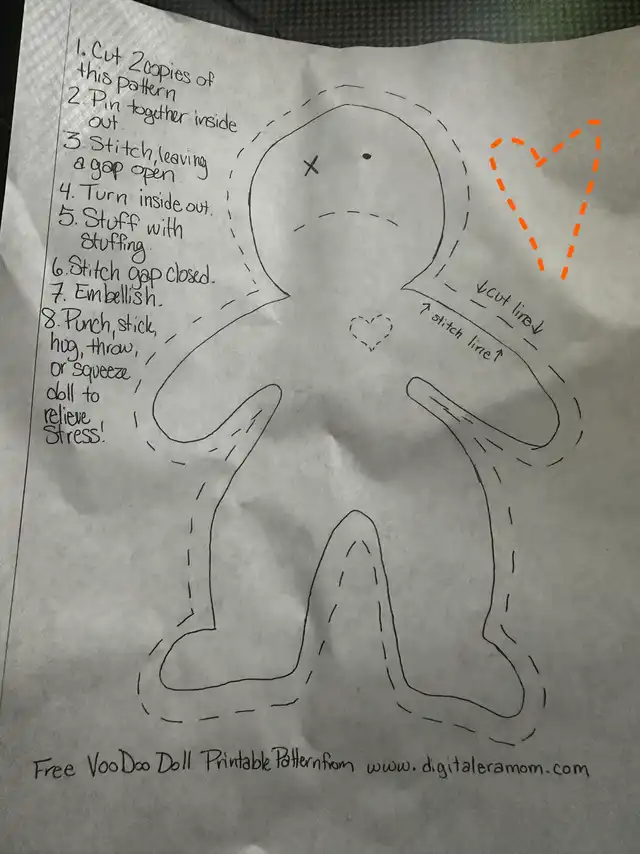 1. Cut 2 copies of
this pattern
2. Pin together inside
out.
3. Stitch, leaving
a gap open
4. Turn inside out.
5. Stuff with
stuffing.
6. Stitch gap closed.
7. Embellish.
8. Punch, stick,
hug, throw,
or squeeze
doll to
relieve
stress!
↓cut line↓
↑stitch line↑
Free VooDoo Doll Printable Pattern from www.digitaleramom.com